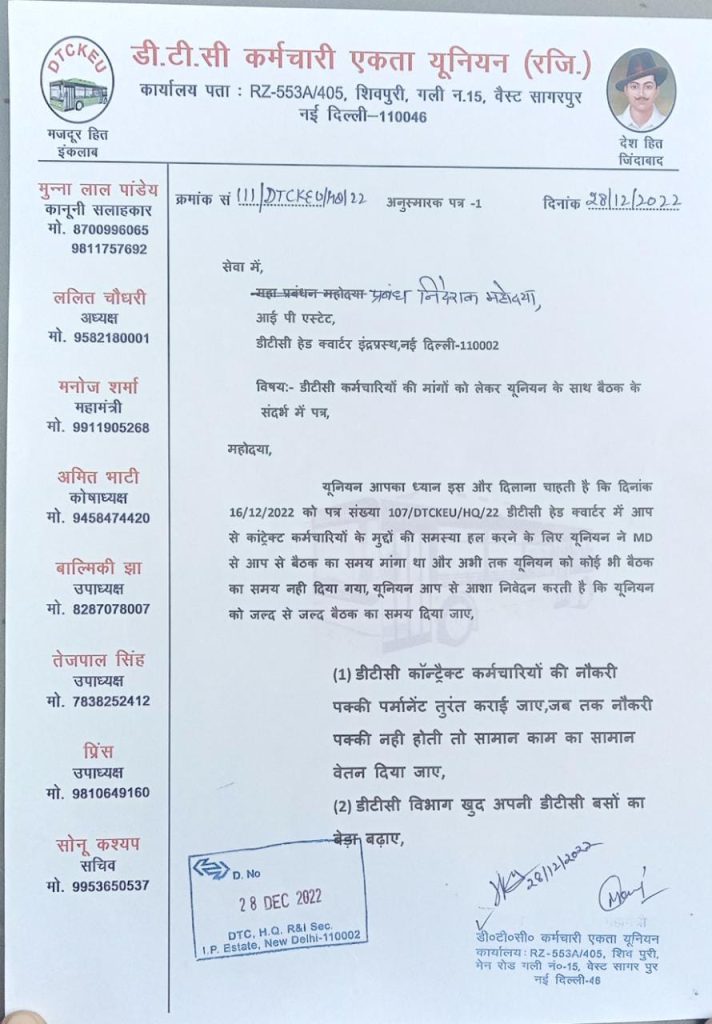 DTCKEU
डी.टी.सी कर्मचारी एकता यूनियन (रजि.)
कार्यालय पता : RZ-553A/405, शिवपुरी, गली न.15, वैस्ट सागरपुर
नई दिल्ली–110046
मजदूर हित
इंकलाब
देश हित
जिंदाबाद
मुन्ना लाल पांडेय
कानूनी सलाहकार
मो. 8700996065
9811757692
ललित चौधरी
अध्यक्ष
मो. 9582180001
मनोज शर्मा
महामंत्री
मो. 9911905268
अमित भाटी
कोषाध्यक्ष
मो. 9458474420
बाल्मिकी झा
उपाध्यक्ष
मो. 8287078007
तेजपाल सिंह
उपाध्यक्ष
मो. 7838252412
प्रिंस
उपाध्यक्ष
मो. 9810649160
सोनू कश्यप
सचिव
मो. 9953650537
क्रमांक सं 111/DTCKEU/HQ/22 अनुस्मारक पत्र -1 दिनांक 28/12/2022
सेवा में,
महा प्रबंधन महोदया प्रबंध निदेशक महोदया,
आई पी एस्टेट,
डीटीसी हेड क्वार्टर इंद्रप्रस्थ,नई दिल्ली-110002
विषय:- डीटीसी कर्मचारियों की मांगों को लेकर यूनियन के साथ बैठक के
संदर्भ में पत्र,
महोदया,
यूनियन आपका ध्यान इस और दिलाना चाहती है कि दिनांक
16/12/2022 को पत्र संख्या 107/DTCKEU/HQ/22 डीटीसी हेड क्वार्टर में आप
से कांट्रेक्ट कर्मचारियों के मुद्दों की समस्या हल करने के लिए यूनियन ने MD
से आप से बैठक का समय मांगा था और अभी तक यूनियन को कोई भी बैठक
का समय नही दिया गया, यूनियन आप से आशा निवेदन करती है कि यूनियन
को जल्द से जल्द बैठक का समय दिया जाए,
(1) डीटीसी कॉन्ट्रैक्ट कर्मचारियों की नौकरी
पक्की पर्मानेंट तुरंत कराई जाए,जब तक नौकरी
पक्की नही होती तो सामान काम का सामान
वेतन दिया जाए,
(2) डीटीसी विभाग खुद अपनी डीटीसी बसों का
बेड़ा बढ़ाए,
D. No
28 DEC 2022
DTC, H.Q. R&I Sec.
I.P. Estate, New Delhi-110002
28/12/2022
डी०टी०सी० कर्मचारी एकता यूनियन
कार्यालय: RZ-553A/405, शिव पुरी,
मेन रोड गली नं०-15, वेस्ट सागर पुर
नई दिल्ली-46